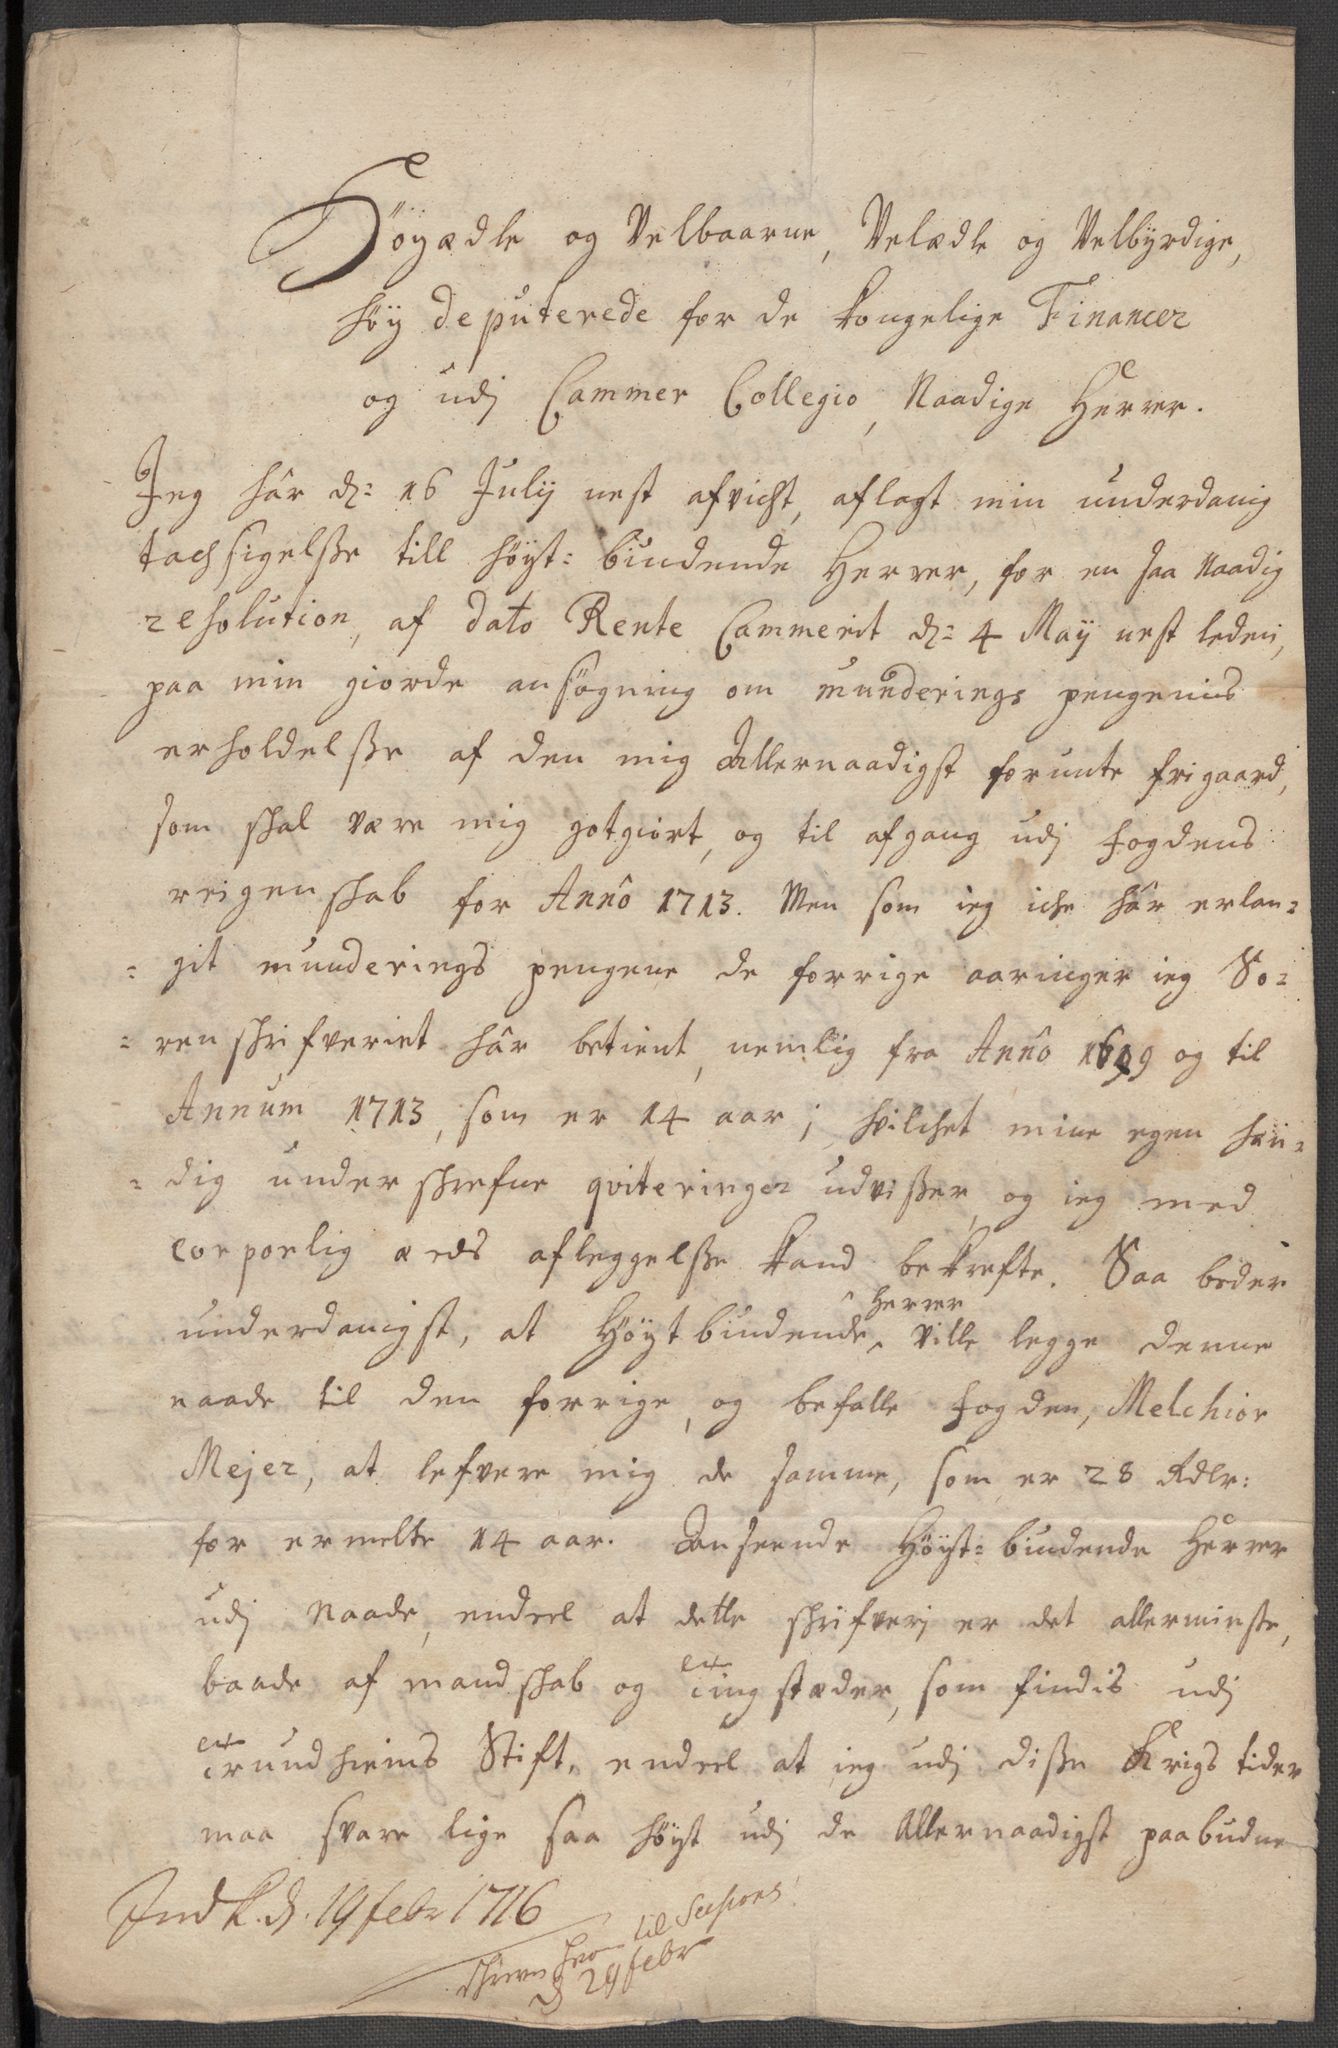 Höyædle og Velbaarne, Velædle og Velbÿrdige,
höy deputerede for de kongelige Financer
og udj Cammer Collegio, Naadige Herrer.
Jeg hâr d: 16 Julij nest afvicht, aflagt min underdanig
tachsigelsse till höyst: biudende Herrer, for en saa naadig
resolution, af dato Rente Cammerit d: 4 Maij nest leden,
paa min giorde ansögning om munderings pengenis
erholdelsse af den mig Allernaadigst forunte frigaard,
som shal være mig gotgiort, og til afgang udj fogdens
reigenshab for Annô 1713. Men som ieg iche hâr erlan=
=git munderings pengene de forrige aaringer ieg So=
=renshrifveriet hâr betient, nemlig fra Annô 1699 og til
Annum 1713, som er 14 aar; hvilchet mine egen hæn=
=dig undershrefne qviteringer udvisser, og ieg med
corporlig æds afleggelsse kand bekrefte. Saa beder
underdanigst, at Höyt biudende herrer ville legge denne
naade til den forrige, og befalle fogden, Melchior
Mejer, at lefvere mig de samme, som er 28 Rdlr:
for ermelte 14 aar. Anseende Höyst= biudende Herrer
udj Naade, endeel at dette shrifverj er det allerminste,
baade af mandshab og tingstæder, som findis udj
Trundhiems Stift, endeel at ieg udj disse Krigs tider
maa svare lige saa höyt udj de Allernaadigst paabudne
Ind k. d. 19 febr 1716
til Sessions
d 29 febr